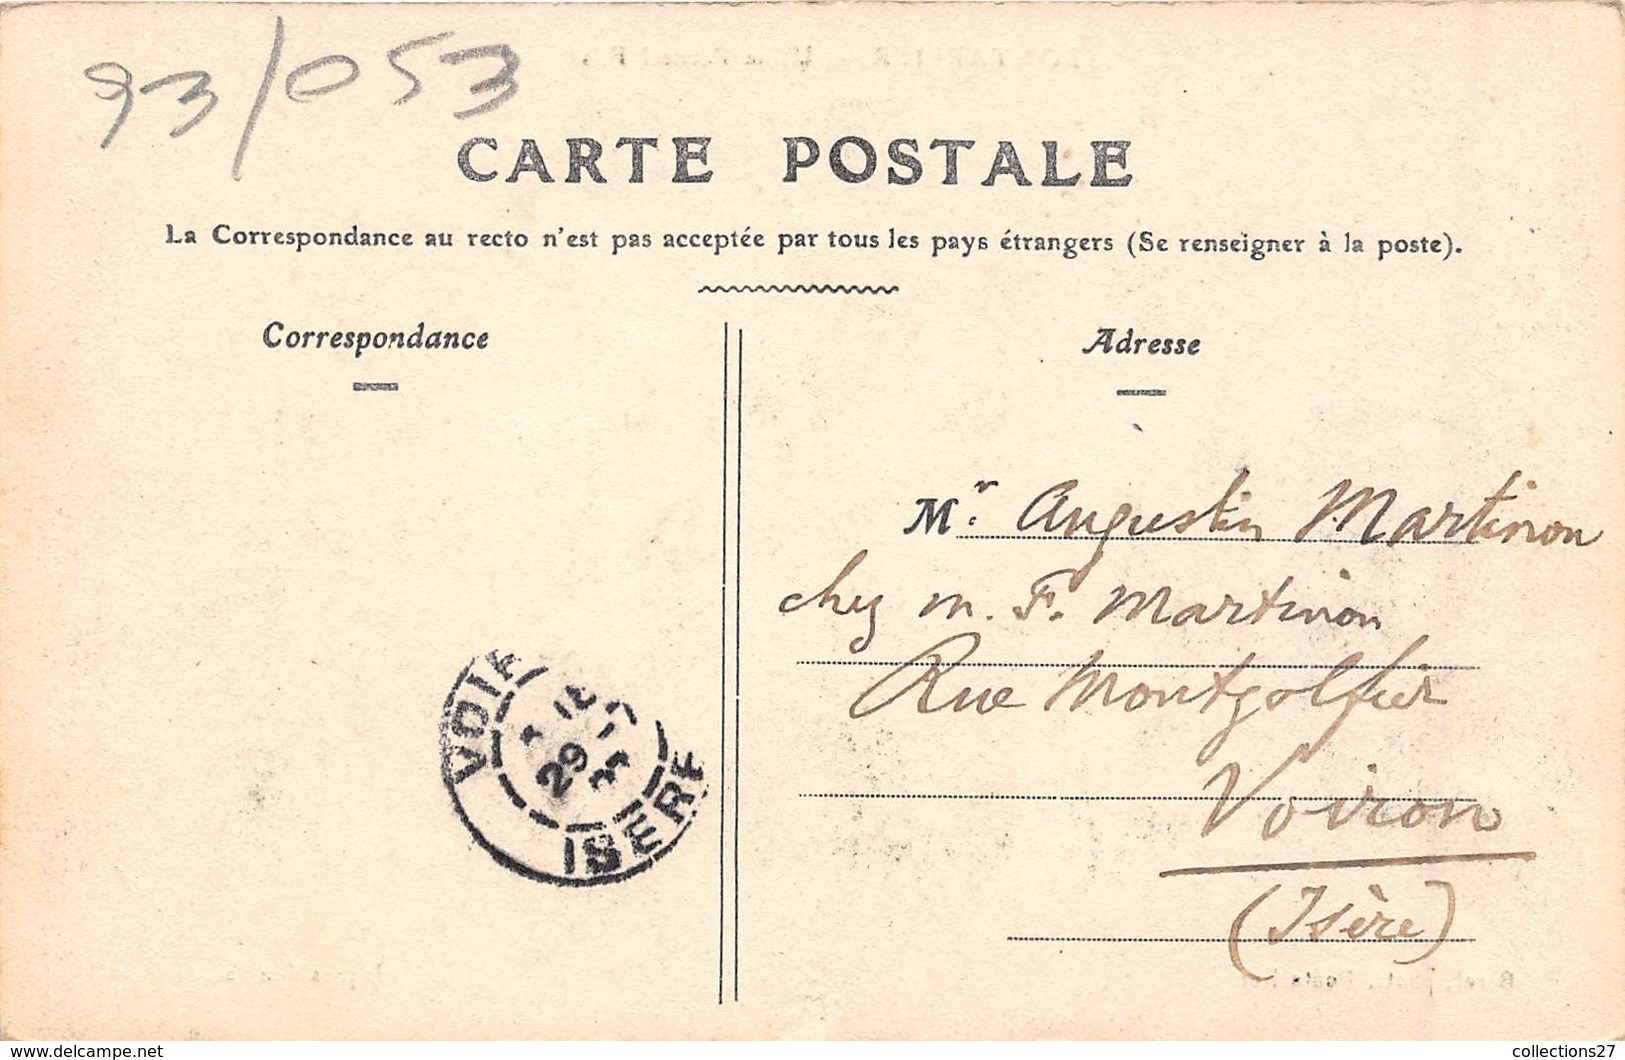 93/053
CARTE POSTALE
La Correspondance au recto n'est pas acceptée par tous les pays étrangers (Se renseigner à la poste).
Correspondance
Adresse
Mr. Augustin Martinon
chez m. F. Martinon
Rue Montgolfier
Voiron
(Isère)
VOIR
29
ISERE
collections27